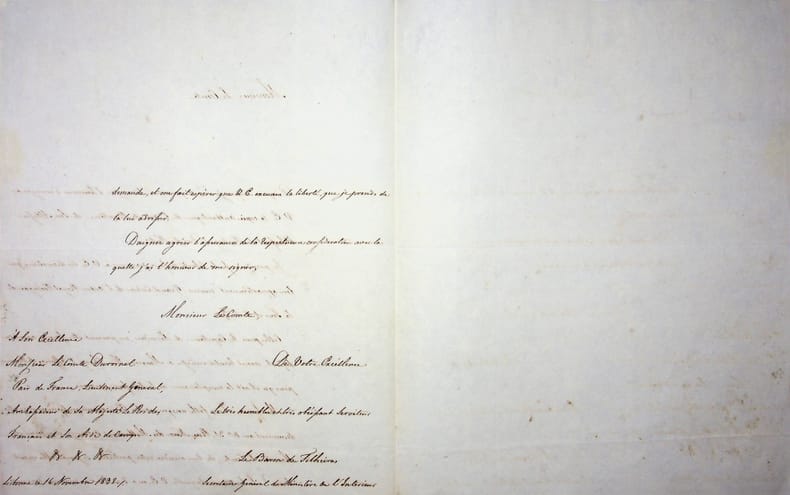 demande, et me fait espérer que V. E. excusera la liberté, que je prends de
la lui adresser.
Daignez agréer l'assurance de la respectueuse considération avec la
quelle j'ai l'honneur de me signer,
Monsieur Le Comte
A Son Excellence
Monsieur Le Comte
De Votre Excellence
Pair de France, Lieutenant Général,
Ambassadeur de Sa Majesté Le Roi des
Le très humble et très obéissant Serviteur
Français et Son Aide de Camp
& & &
Le Baron de
Lisbonne ce 16 Novembre
Secrétaire Général du Ministère de l'Intérieur